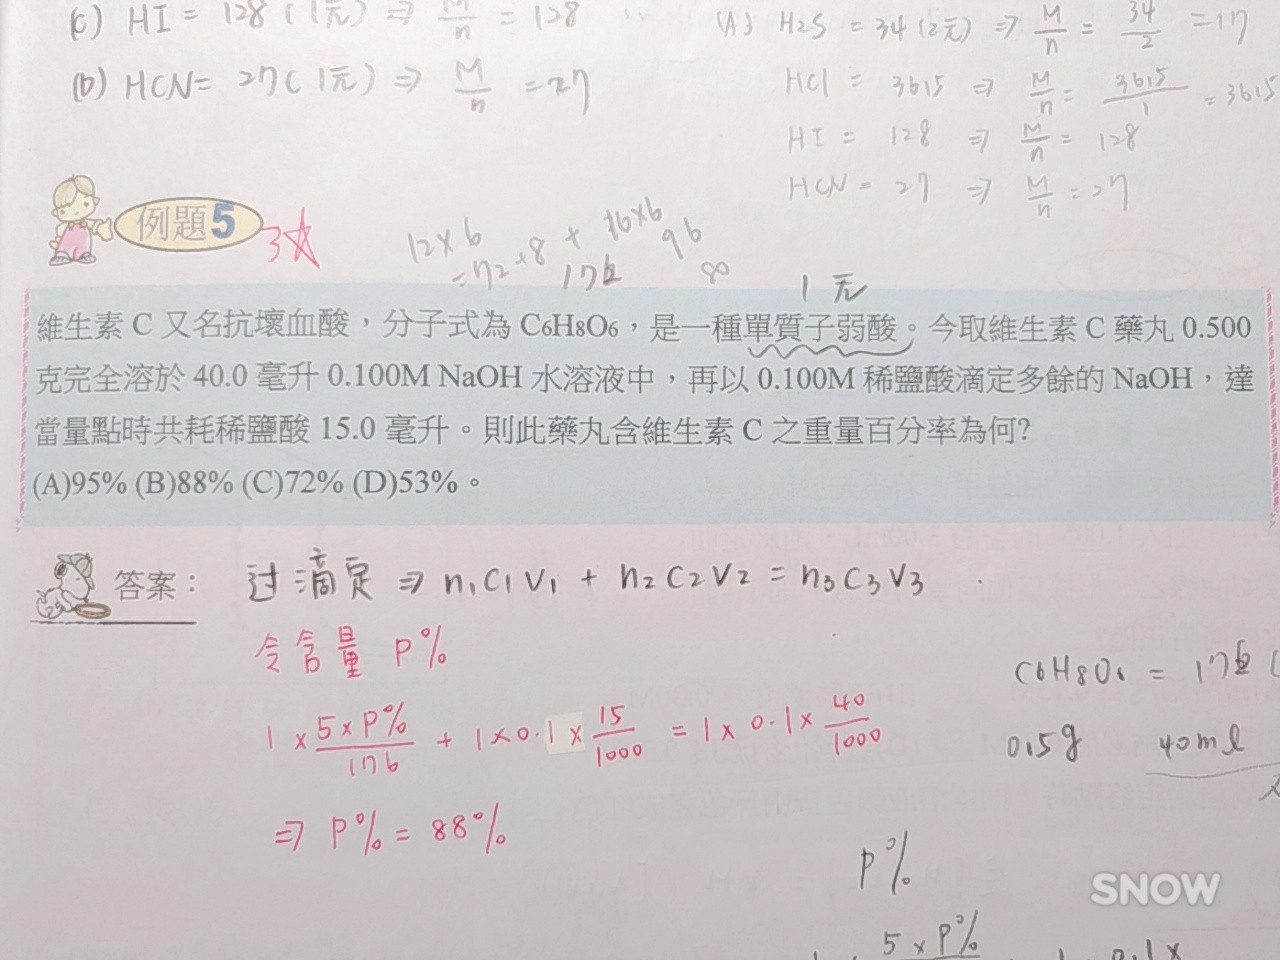 (C) HI = 128 (1元) ⇒ M/n = 128
(D) HCN = 27 (1元) ⇒ M/n = 27
(A) H2S = 34 (2元) ⇒ M/n = 34/2 = 17
HCl = 36.5 ⇒ M/n = 36.5/1 = 36.5
HI = 128 ⇒ M/n = 128
HCN = 27 ⇒ M/n = 27
例題5
3☆
12×6 + 16×6
=72 +8 176 96
80
1元
維生素 C 又名抗壞血酸，分子式為 C6H8O6，是一種單質子弱酸。今取維生素 C 藥丸 0.500
克完全溶於 40.0 毫升 0.100M NaOH 水溶液中，再以 0.100M 稀鹽酸滴定多餘的 NaOH，達
當量點時共耗稀鹽酸 15.0 毫升。則此藥丸含維生素 C 之重量百分率為何?
(A)95% (B)88% (C)72% (D)53%。
答案：
过滴定 ⇒ n1C1V1 + n2C2V2 = n3C3V3
令含量 P%
1 × 5×P%/176 + 1×0.1 × 15/1000 = 1×0.1× 40/1000
⇒ P% = 88%
C6H8O6 = 176
0.5g 40ml
P%
5×P%
0.1×
SNOW